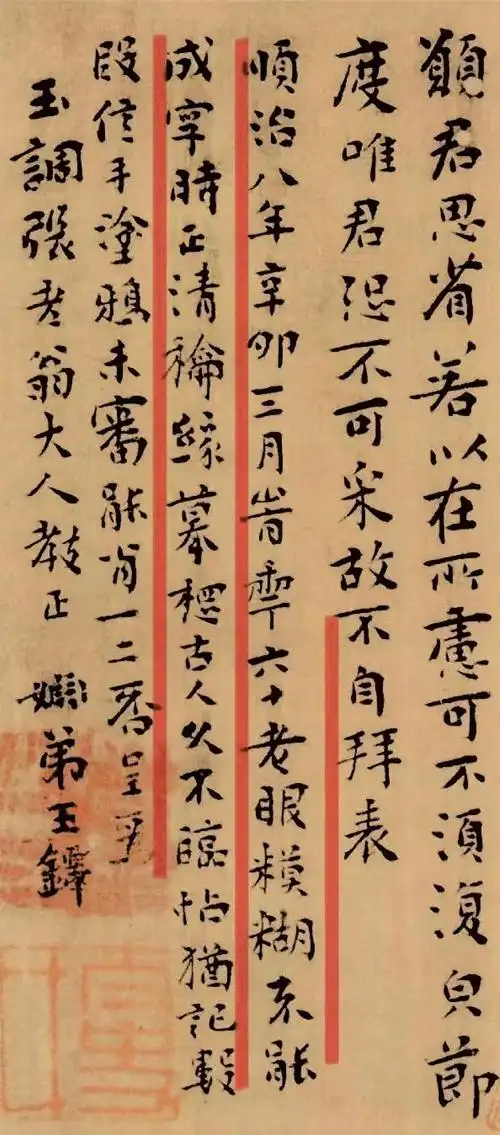 觀君思省若以在所慮可不須復皃節
度唯君恐不可采故不自拜表
順治八年辛卯二月皆雫六十老眼糢糊不能
成字時正清穐緣摹穩古人久不臨帖猶記數
段信手塗鴉未審能肖一二否呈
玉調張老翁大人教正 弟王鐸